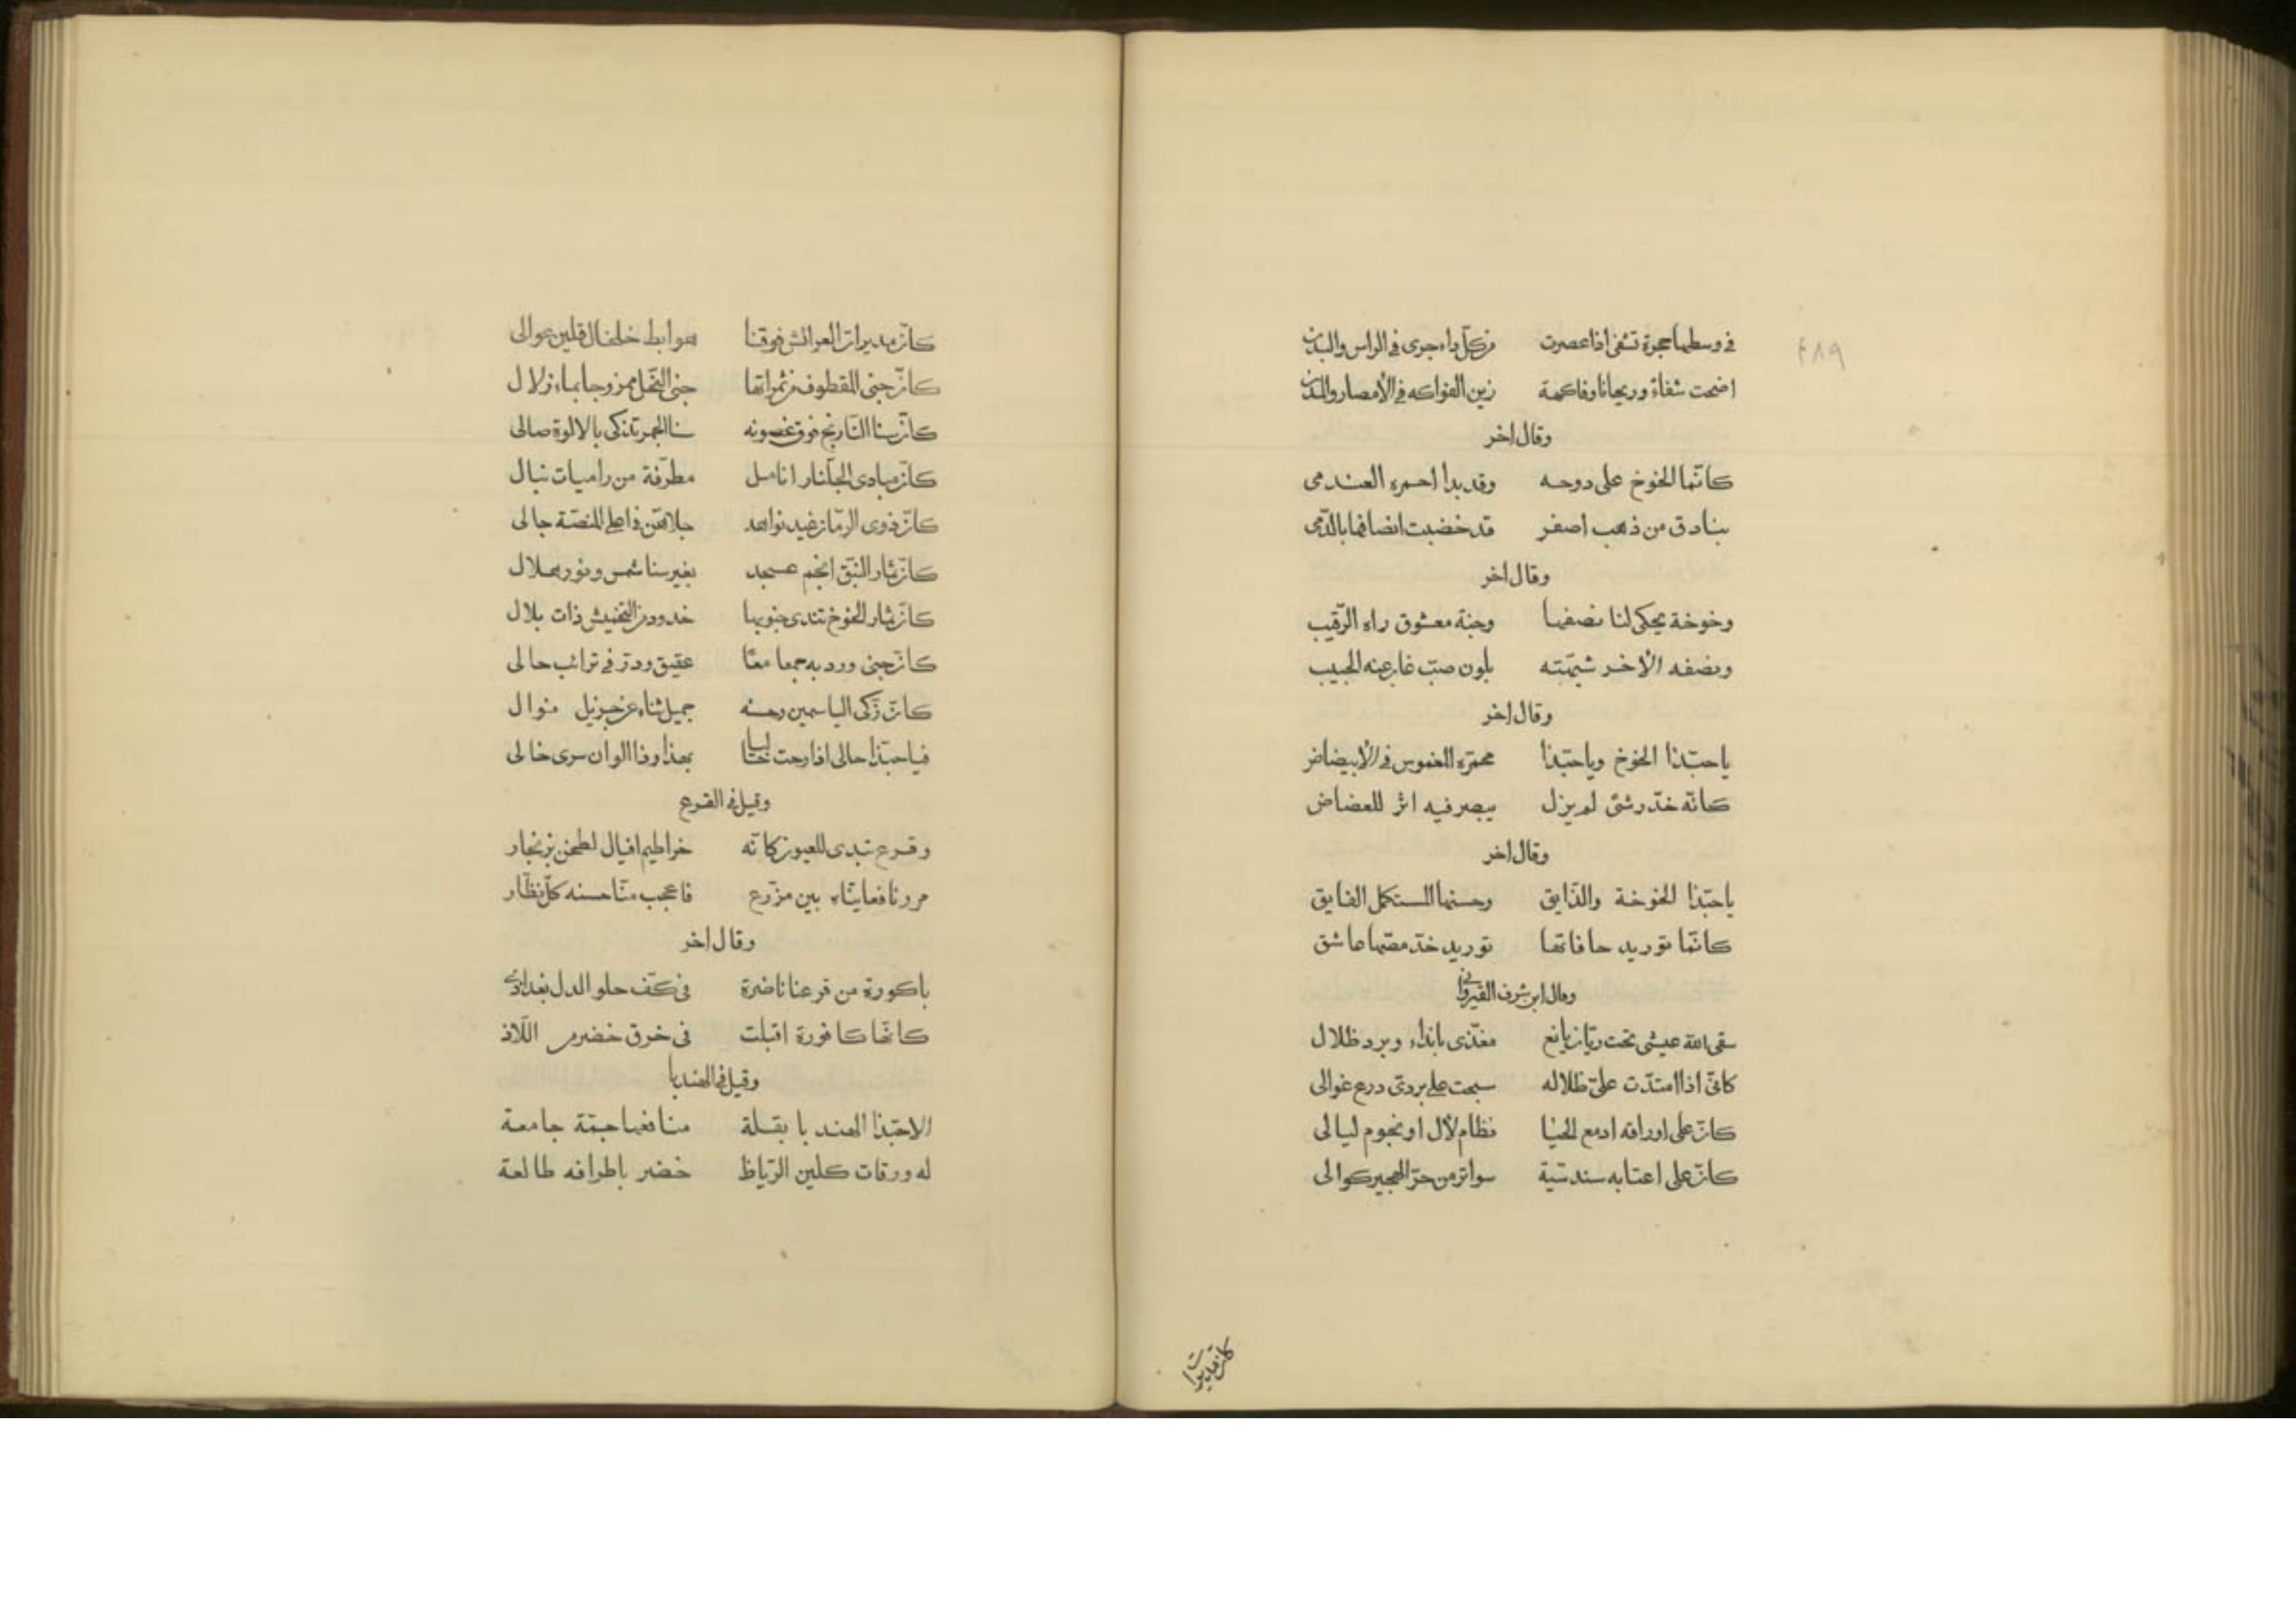 ٤٨٩
في وسطها عجرة تشفى اذا عصرت من كل داء جرى في الراس والبدن
اضحت شفاء وريحانا وفاكهة زين الفواكه في الأمصار والمدن
وقال اخر
كانّما الخوخ على دوحه وقد بدا احمره العندمى
بنادق من ذهب اصفر قد خضبت انصافها بالدّم
وقال اخر
وخوخة يحكى لنا نصفها وجنة معشوق راه الرّقيب
ونصفه الأخر شبّهته بلون صبّ غاب عنه الحبيب
وقال اخر
ياحبّذا الخوخ وياحبّذا محمرّه المغموس في الأبيضاض
كانّه خدّ رشئ لم يزل يبصر فيه اثر للعضاض
وقال اخر
ياحبّذا الخوخة والذّايق وحسنها المستكمل الفايق
كانّما توريد حافاتها توريد خدّ مصّها عاشق
وقال ابن شرف القيرواني
سقى الله عيشى تحت ريّان يانع مغذّى بانداء وبرد ظلال
كانّى اذا امتدّت علىّ ظلاله سحبت على بردىّ درع غوالى
كانّ على اوراقه ادمع الحيا نظام لأل او نجوم ليالى
كانّ على اعتابه سندسّية سواتر من حرّ الهجير كوالى
كانّ مديرات
كانّ مديرات العرائش فوقنا هوابط خلخال قلين عوالى
كانّ جنى المقطوف من ثمراتها جنى النّحل ممزوجا بماء زلال
كانّ سنا النّارنج فوق غصونه سنا الجمر تذكى بالالوة صالى
كانّ مبادى الجلّنار انامل مطرّفة من راميات نبال
كانّ ذوى الرمّان غيد نواهد جلاهنّ فى اعلى المنصّة جالى
كانّ ثمار النّبق انجم عسجد بغير سنا شمس ونور هلال
كانّ ثمار الخوخ تندى جنوبها خدود من التّخميش ذات بلال
كانّ جنى ورد به جمعا معًا عقيق ودرّ في ترائب حالى
كانّ زكى الياسمين وحسنه جميل ثناء عن جزيل منوال
فياحبّذا حالى اذا رحت لبسا بهذا وذا الوان سرى خالى
وقيل في القرع
وقرع تبدى للعيون كانّه خراطيم افيال لطخن بزنجار
مررنا فعاينّاه بين مزرّع فاعجب منّا حسنه كلّ نظّار
وقال اخر
باكورة من قرعنا ناضرة فى كفّ حلو الدل بغداذى
كانّها كافورة اقبلت فى خرق خضر من اللّاذ
وقيل في الهندبا
الاحبّذا الهندبا بقلة منافعها جمّة جامعة
له ورقات كلين الرّياط خضر باطرافه طالعة